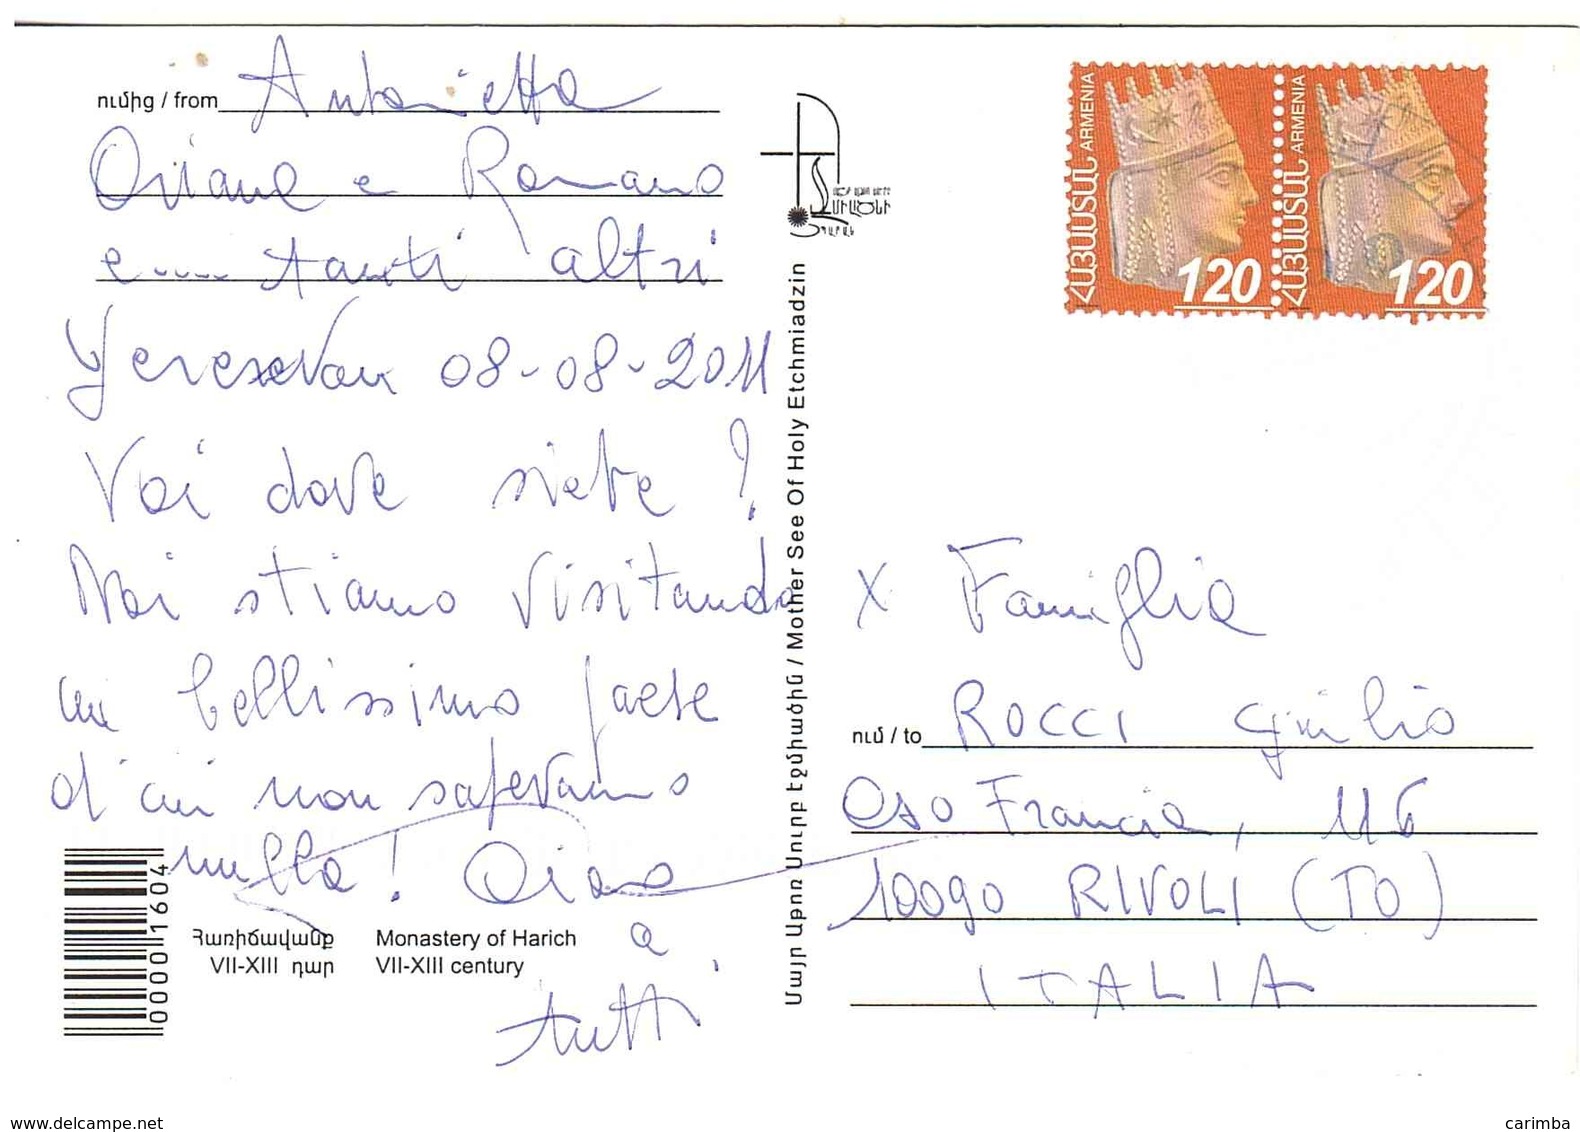 ումից / from Antonietta
Oriana e Romano
e..... tanti altri
Yerevan 08-08-2011
Voi dove siete?
Noi stiamo visitando
un bellissimo paese
d'cui non sapevamo
nulla! Ciao
a
tutti
0000 1604
Հառիճավանք
VII-XIII դար
Monastery of Harich
VII-XIII century
Մայր Աթոռ Սուրբ Էջմիածին / Mother See Of Holy Etchmiadzin
ՀԱՅԱՍՏԱՆ ARMENIA
120
ՀԱՅԱՍՏԱՆ ARMENIA
120
X Famiglia
ում / to ROCCI Giulio
Cso Francia, 116
10090 RIVOLI (TO)
ITALIA
www.delcampe.net
carimba